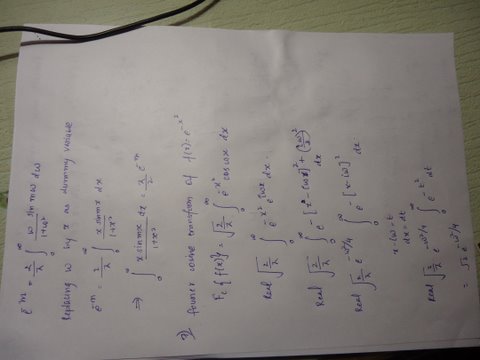 e^-m = 2/π ∫_0^∞ w sin mw dw / 1+w²
Replacing w by x as dummy variable
e^-m = 2/π ∫_0^∞ x sin mx / 1+x² dx
⇒ ∫_0^∞ x sin mx / 1+x² dx = π/2 e^-m
Fourier cosine transform of f(x) = e^-x²
F_c {f(x)} = √(2/π) ∫_0^∞ e^-x² cos wx dx
Real √(2/π) ∫_0^∞ e^-x² · iwx dx
Real √(2/π) ∫_0^∞ dx
Real √(2/π) e^-w²/4 ∫_0^∞ dx
dx = dt
Real √(2/π) e^-w²/4 ∫_0^∞ e^-t² dt
e^-w²/4